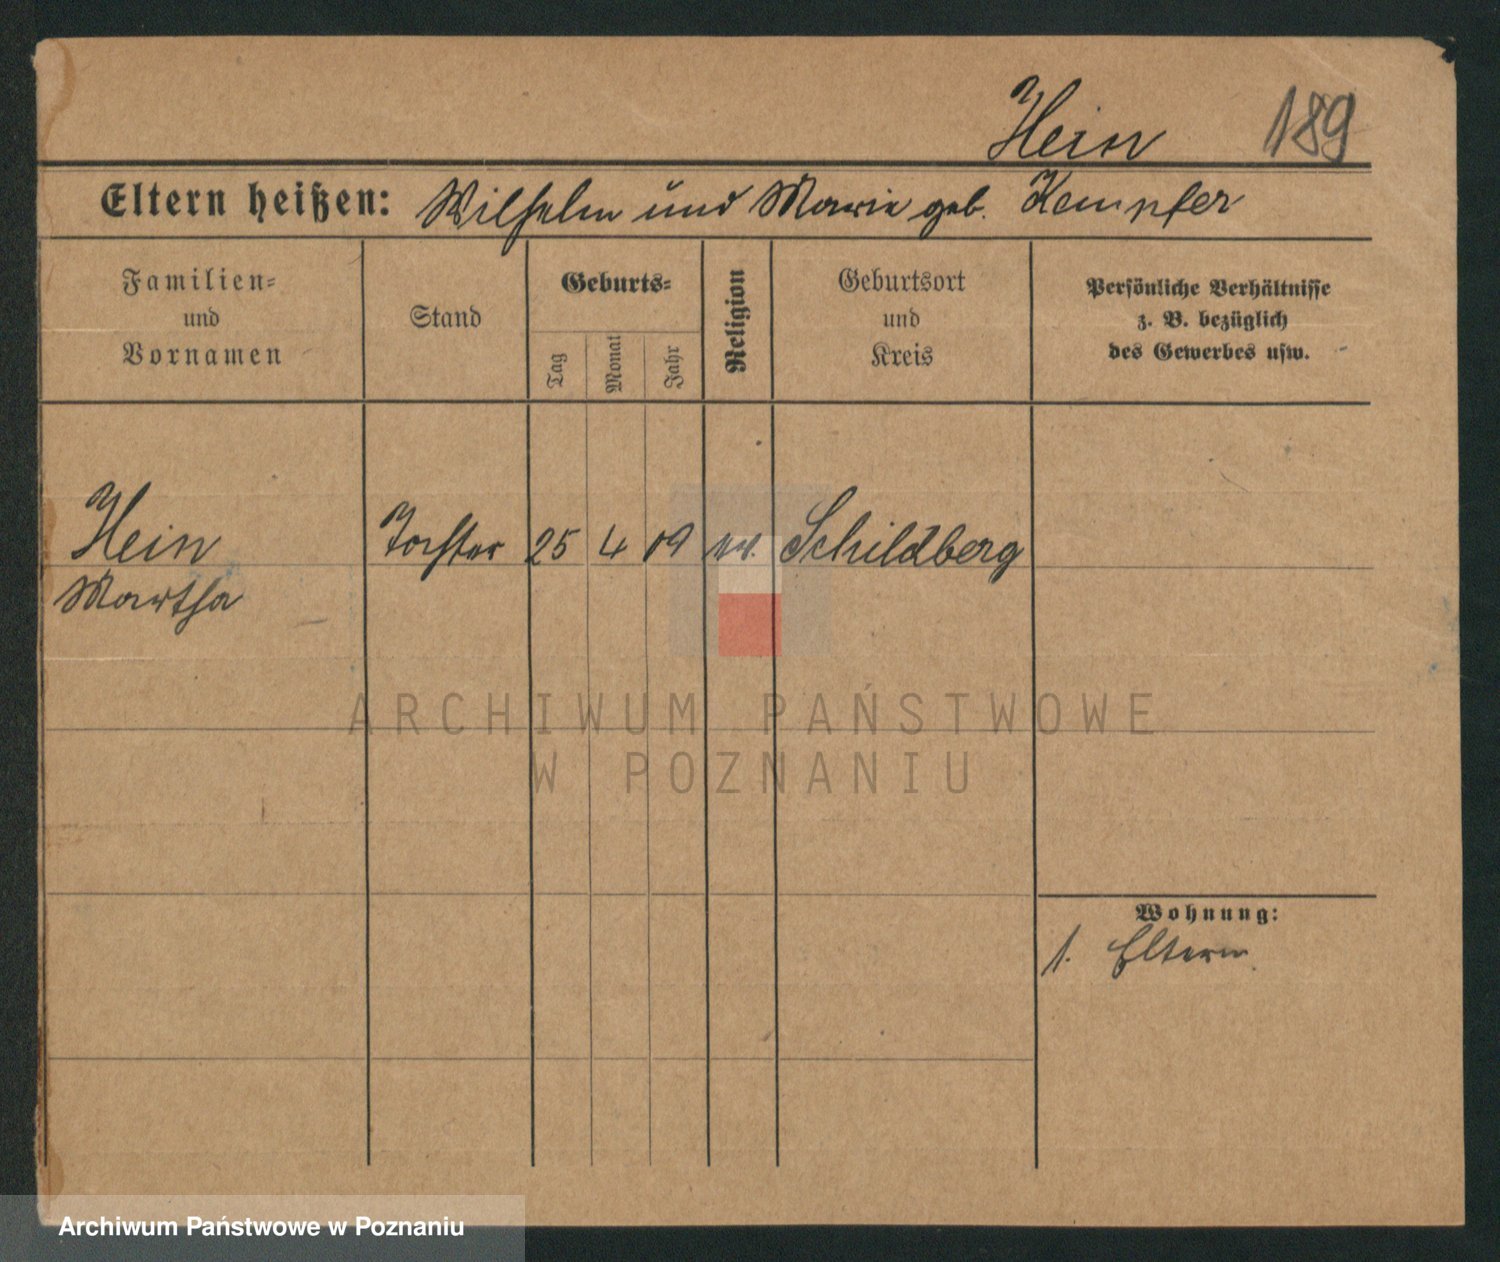 Hein 189
Eltern heißen: Wilhelm und Marie geb. Kempfer
Familien-
und
Vornamen
Stand
Geburts-
Tag
Monat
Jahr
Religion
Geburtsort
und
Kreis
Persönliche Verhältnisse
z. B. bezüglich
des Gewerbes usw.
Hein Tochter 25 4 09 ev. Schildberg
Martha
ARCHIWUM PAŃSTWOWE
W POZNANIU
Wohnung:
1. Eltern
Archiwum Państwowe w Poznaniu